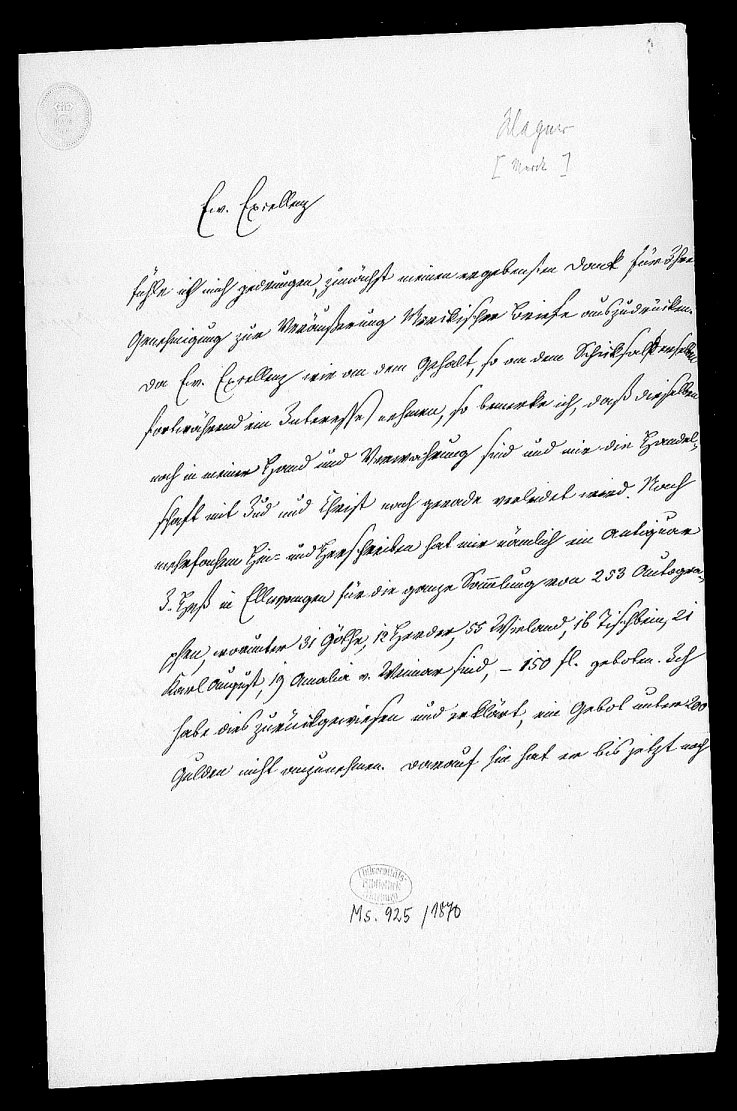 Wagner
[Merck]
Ew. Excellenz
fühle ich mich gedrungen, zunächst meinen ergebensten Dank für Ihre
Genehmigung zur Veräußerung Merckischer Briefe auszudrücken.
Da Ew. Excellenz wie an dem Gehalt, so an dem Schicksal derselben
fortwährend ein Interesse nehmen, so bemerke ich, daß dieselben
noch in meiner Hand und Verwahrung sind und mir die Handel-
schaft mit Jud und Christ nach gerade verleidet wird. Nach
mehrfachem Hin- und Herschreiben hat mir nämlich ein Antiquar
J. Heß in Ellwangen für die ganze Sam̅lung von 253 Autogra-
phen, worunter 31 Göthe, 12 Herder, 55 Wieland, 16 Tischbein, 21
Karl August, 19 Amalia v. Weimar sind, – 150 fl. geboten. Ich
habe dies zurückgewiesen und erklärt, ein Gebot unter 200
Gulden nicht anzunehmen. Darauf hin hat er bis jetzt noch
Universitäts
Bibliothek
Ms. 925/1870